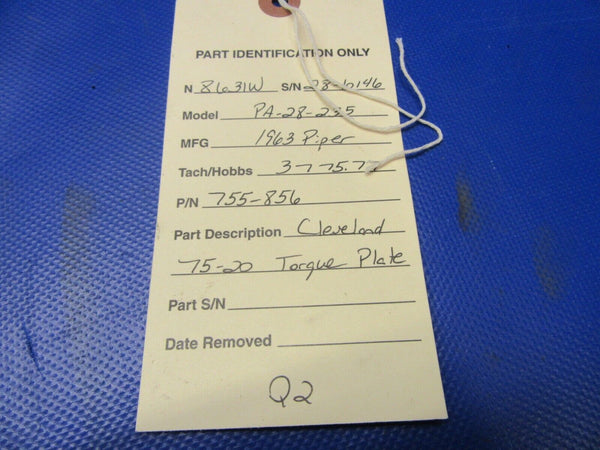 PART IDENTIFICATION ONLY
N 8631W S/N 28-
Model PA-28-235
MFG 1963 Piper
Tach/Hobbs
P/N 755-856
Part Description Cleveland
75-20 Torque Plate
Part S/N
Date Removed
Q2